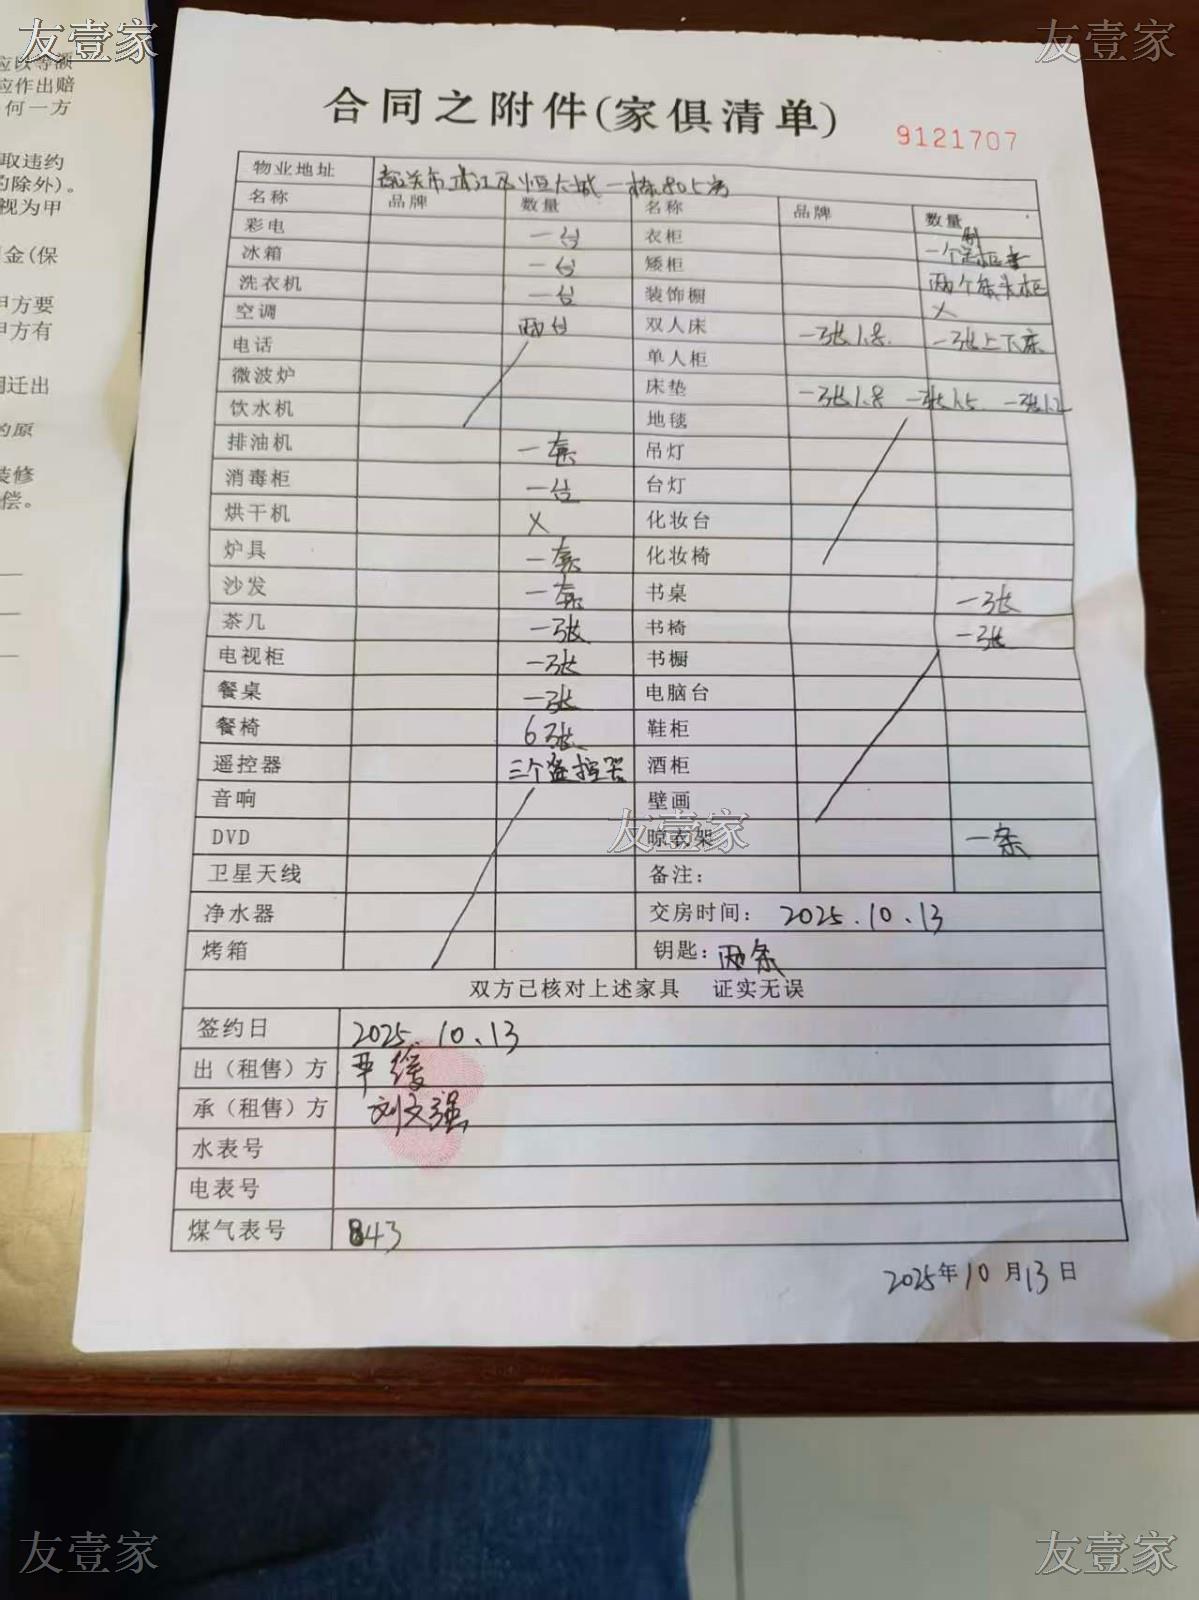 友壹家
友壹家
应以等额
应作出赔
何一方
取违约
的除外)。
视为甲
金(保
甲方要
甲方有
迁出
的原
装修
偿。
合同之附件(家俱清单)
9121707
物业地址 韶关市浈江区恒大城一栋805房
名称 品牌 数量 名称 品牌 数量
彩电 一台 衣柜
冰箱 一台 矮柜 一个
洗衣机 一台 装饰橱 两个床头柜
空调 两台 双人床 一张1.8 一张上下床
电话 单人柜
微波炉 床垫 一张1.8 一张1.5 一张1.2
饮水机 地毯
排油机 一套 吊灯
消毒柜 一台 台灯
烘干机 X 化妆台
炉具 一套 化妆椅
沙发 一套 书桌 一张
茶几 一张 书椅 一张
电视柜 一张 书橱
餐桌 一张 电脑台
餐椅 6张 鞋柜
遥控器 三个遥控器 酒柜
音响 壁画
友壹家
DVD 晾衣架 一条
卫星天线 备注：
净水器 交房时间： 2025.10.13
烤箱 钥匙：两条
双方已核对上述家具 证实无误
签约日 2025.10.13
出（租售）方
承（租售）方 刘文强
水表号
电表号
煤气表号 843
2025年10月13日
友壹家
友壹家